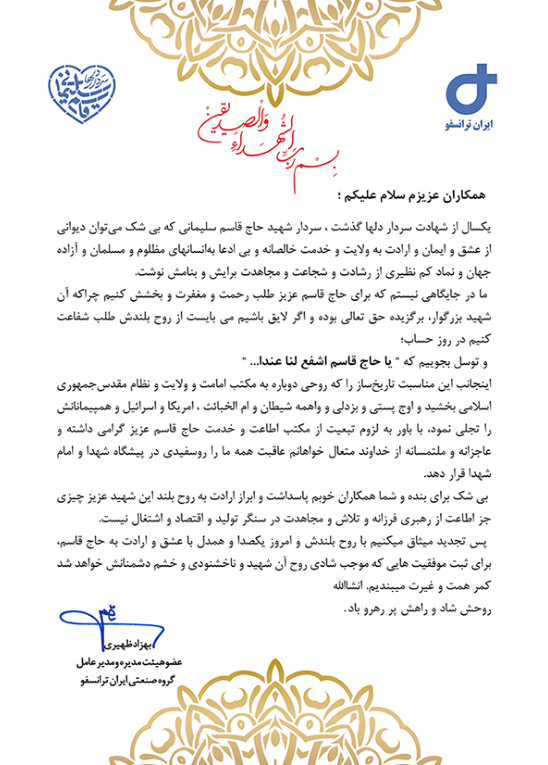 سردار دلها
قاسم سلیمانی
ایران ترانسفو
بِسْمِ رَبِّ الشُّهَداءِ وَالْصِدیقینْ
همکاران عزیزم سلام علیکم ؛
یکسال از شهادت سردار دلها گذشت ، سردار شهید حاج قاسم سلیمانی که بی شک می‌توان دیوانی
از عشق و ایمان و ارادت به ولایت و خدمت خالصانه و بی ادعا به‌انسانهای مظلوم و مسلمان و آزاده
جهان و نماد کم نظیری از رشادت و شجاعت و مجاهدت برایش و بنامش نوشت.
ما در جایگاهی نیستم که برای حاج قاسم عزیز طلب رحمت و مغفرت و بخشش کنیم چراکه آن
شهید بزرگوار، برگزیده حق تعالی بوده و اگر لایق باشیم می بایست از روح بلندش طلب شفاعت
کنیم در روز حساب؛
و توسل بجوییم که " یا حاج قاسم اشفع لنا عندا... "
اینجانب این مناسبت تاریخ‌ساز را که روحی دوباره به مکتب امامت و ولایت و نظام مقدس‌جمهوری
اسلامی بخشید و اوج پستی و بزدلی و واهمه شیطان و ام الخبائث ، امریکا و اسرائیل و همپیمانانش
را تجلی نمود، با باور به لزوم تبعیت از مکتب اطاعت و خدمت حاج قاسم عزیز گرامی داشته و
عاجزانه و ملتمسانه از خداوند متعال خواهانم عاقبت همه ما را روسفیدی در پیشگاه شهدا و امام
شهدا قرار دهد.
بی شک برای بنده و شما همکاران خوبم پاسداشت و ابراز ارادت به روح بلند این شهید عزیز چیزی
جز اطاعت از رهبری فرزانه و تلاش و مجاهدت در سنگر تولید و اقتصاد و اشتغال نیست.
پس تجدید میثاق میکنیم با روح بلندش و امروز یکصدا و همدل با عشق و ارادت به حاج قاسم،
برای ثبت موفقیت هایی که موجب شادی روح آن شهید و ناخشنودی و خشم دشمنانش خواهد شد
کمر همت و غیرت میبندیم. انشاالله
روحش شاد و راهش پر رهرو باد .
بهزادظهیری
عضوهیئت مدیره‌ومدیرعامل
گروه‌صنعتی‌ایران ترانسفو